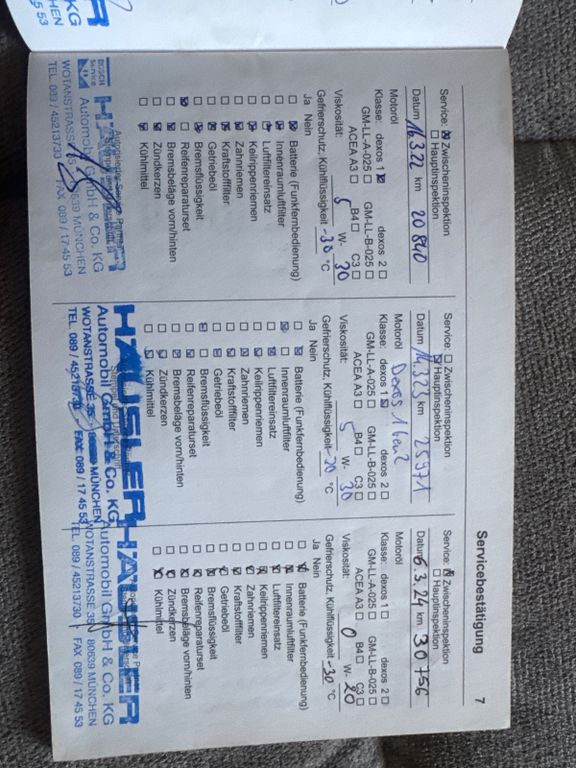 Servicebestätigung 7
Service: ☒ Zwischeninspektion
☐ Hauptinspektion
Datum 16.3.22 km 20 840
Motoröl
Klasse: dexos 1 ☒ dexos 2 ☐
GM-LL-A-025 ☐ GM-LL-B-025 ☐
ACEA A3 ☐ B4 ☐ C3 ☐
Viskosität: 5 W- 30
Gefrierschutz, Kühlflüssigkeit -30 °C
Ja Nein
☐ ☒ Batterie (Funkfernbedienung)
☐ ☒ Innenraumluftfilter
☐ ☒ Luftfiltereinsatz
☐ ☒ Keilrippenriemen
☐ ☒ Zahnriemen
☐ ☒ Kraftstofffilter
☐ ☒ Getriebeöl
☐ ☒ Bremsflüssigkeit
☒ ☐ Reifenreparaturset
☐ ☒ Bremsbeläge vorn/hinten
☐ ☒ Zündkerzen
☐ ☒ Kühlmittel
BOSCH
Service
HÄUSLER
Automobil GmbH & Co. KG
WOTANSTRASSE MÜNCHEN
TEL. 089 / 45213730 FAX 089 / 17 45 53
Service: ☐ Zwischeninspektion
☒ Hauptinspektion
Datum 14.3.23 km 25971
Motoröl Dexos 1 Gen2
Klasse: dexos 1 ☒ dexos 2 ☐
GM-LL-A-025 ☐ GM-LL-B-025 ☐
ACEA A3 ☐ B4 ☐ C3 ☐
Viskosität: 5 W- 30
Gefrierschutz, Kühlflüssigkeit -20 °C
Ja Nein
☐ ☒ Batterie (Funkfernbedienung)
☒ ☐ Innenraumluftfilter
☐ ☒ Luftfiltereinsatz
☐ ☒ Keilrippenriemen
☐ ☒ Zahnriemen
☐ ☒ Kraftstofffilter
☐ ☒ Getriebeöl
☒ ☐ Bremsflüssigkeit
☐ ☒ Reifenreparaturset
☐ ☒ Bremsbeläge vorn/hinten
☐ ☒ Zündkerzen
☐ ☒ Kühlmittel
HÄUSLER
Automobil GmbH & Co. KG
WOTANSTRASSE 35 80639 MÜNCHEN
TEL. 089 / 45213730 FAX: 089 / 17 45 53
Service: ☒ Zwischeninspektion
☐ Hauptinspektion
Datum 6.3.24 km 30 756
Motoröl
Klasse: dexos 1 ☐ dexos 2 ☐
GM-LL-A-025 ☐ GM-LL-B-025 ☐
ACEA A3 ☐ B4 ☐ C3 ☐
Viskosität: 0 W- 20
Gefrierschutz, Kühlflüssigkeit -30 °C
Ja Nein
☐ ☒ Batterie (Funkfernbedienung)
☐ ☒ Innenraumluftfilter
☐ ☒ Luftfiltereinsatz
☐ ☒ Keilrippenriemen
☐ ☒ Zahnriemen
☐ ☒ Kraftstofffilter
☐ ☒ Getriebeöl
☐ ☒ Bremsflüssigkeit
☐ ☒ Reifenreparaturset
☐ ☒ Bremsbeläge vorn/hinten
☐ ☒ Zündkerzen
☐ ☒ Kühlmittel
HÄUSLER
Automobil GmbH & Co. KG
WOTANSTRASSE 35 80639 MÜNCHEN
TEL. 089 / 45213730 FAX 089 / 17 45 53